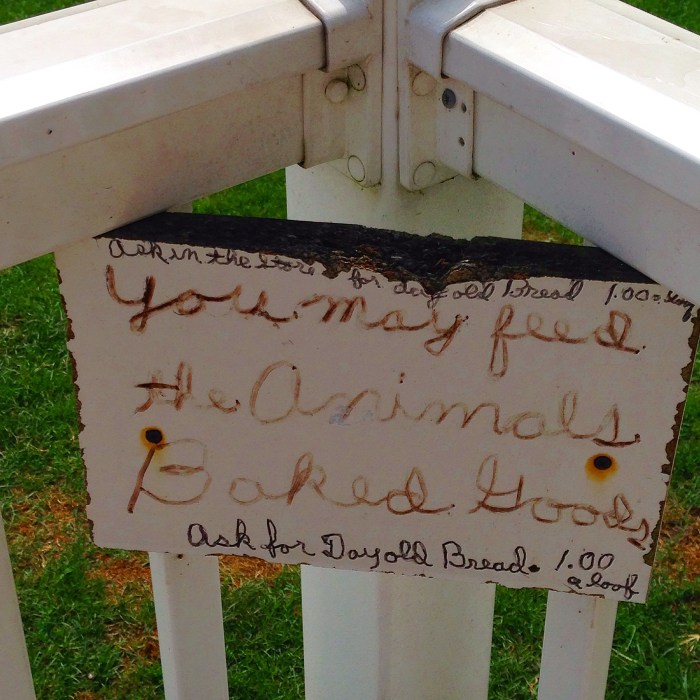 Ask in the Store for day old Bread 1.00
You may feed
the Animals
Baked Goods
Ask for Dayold Bread. 1.00
a loof